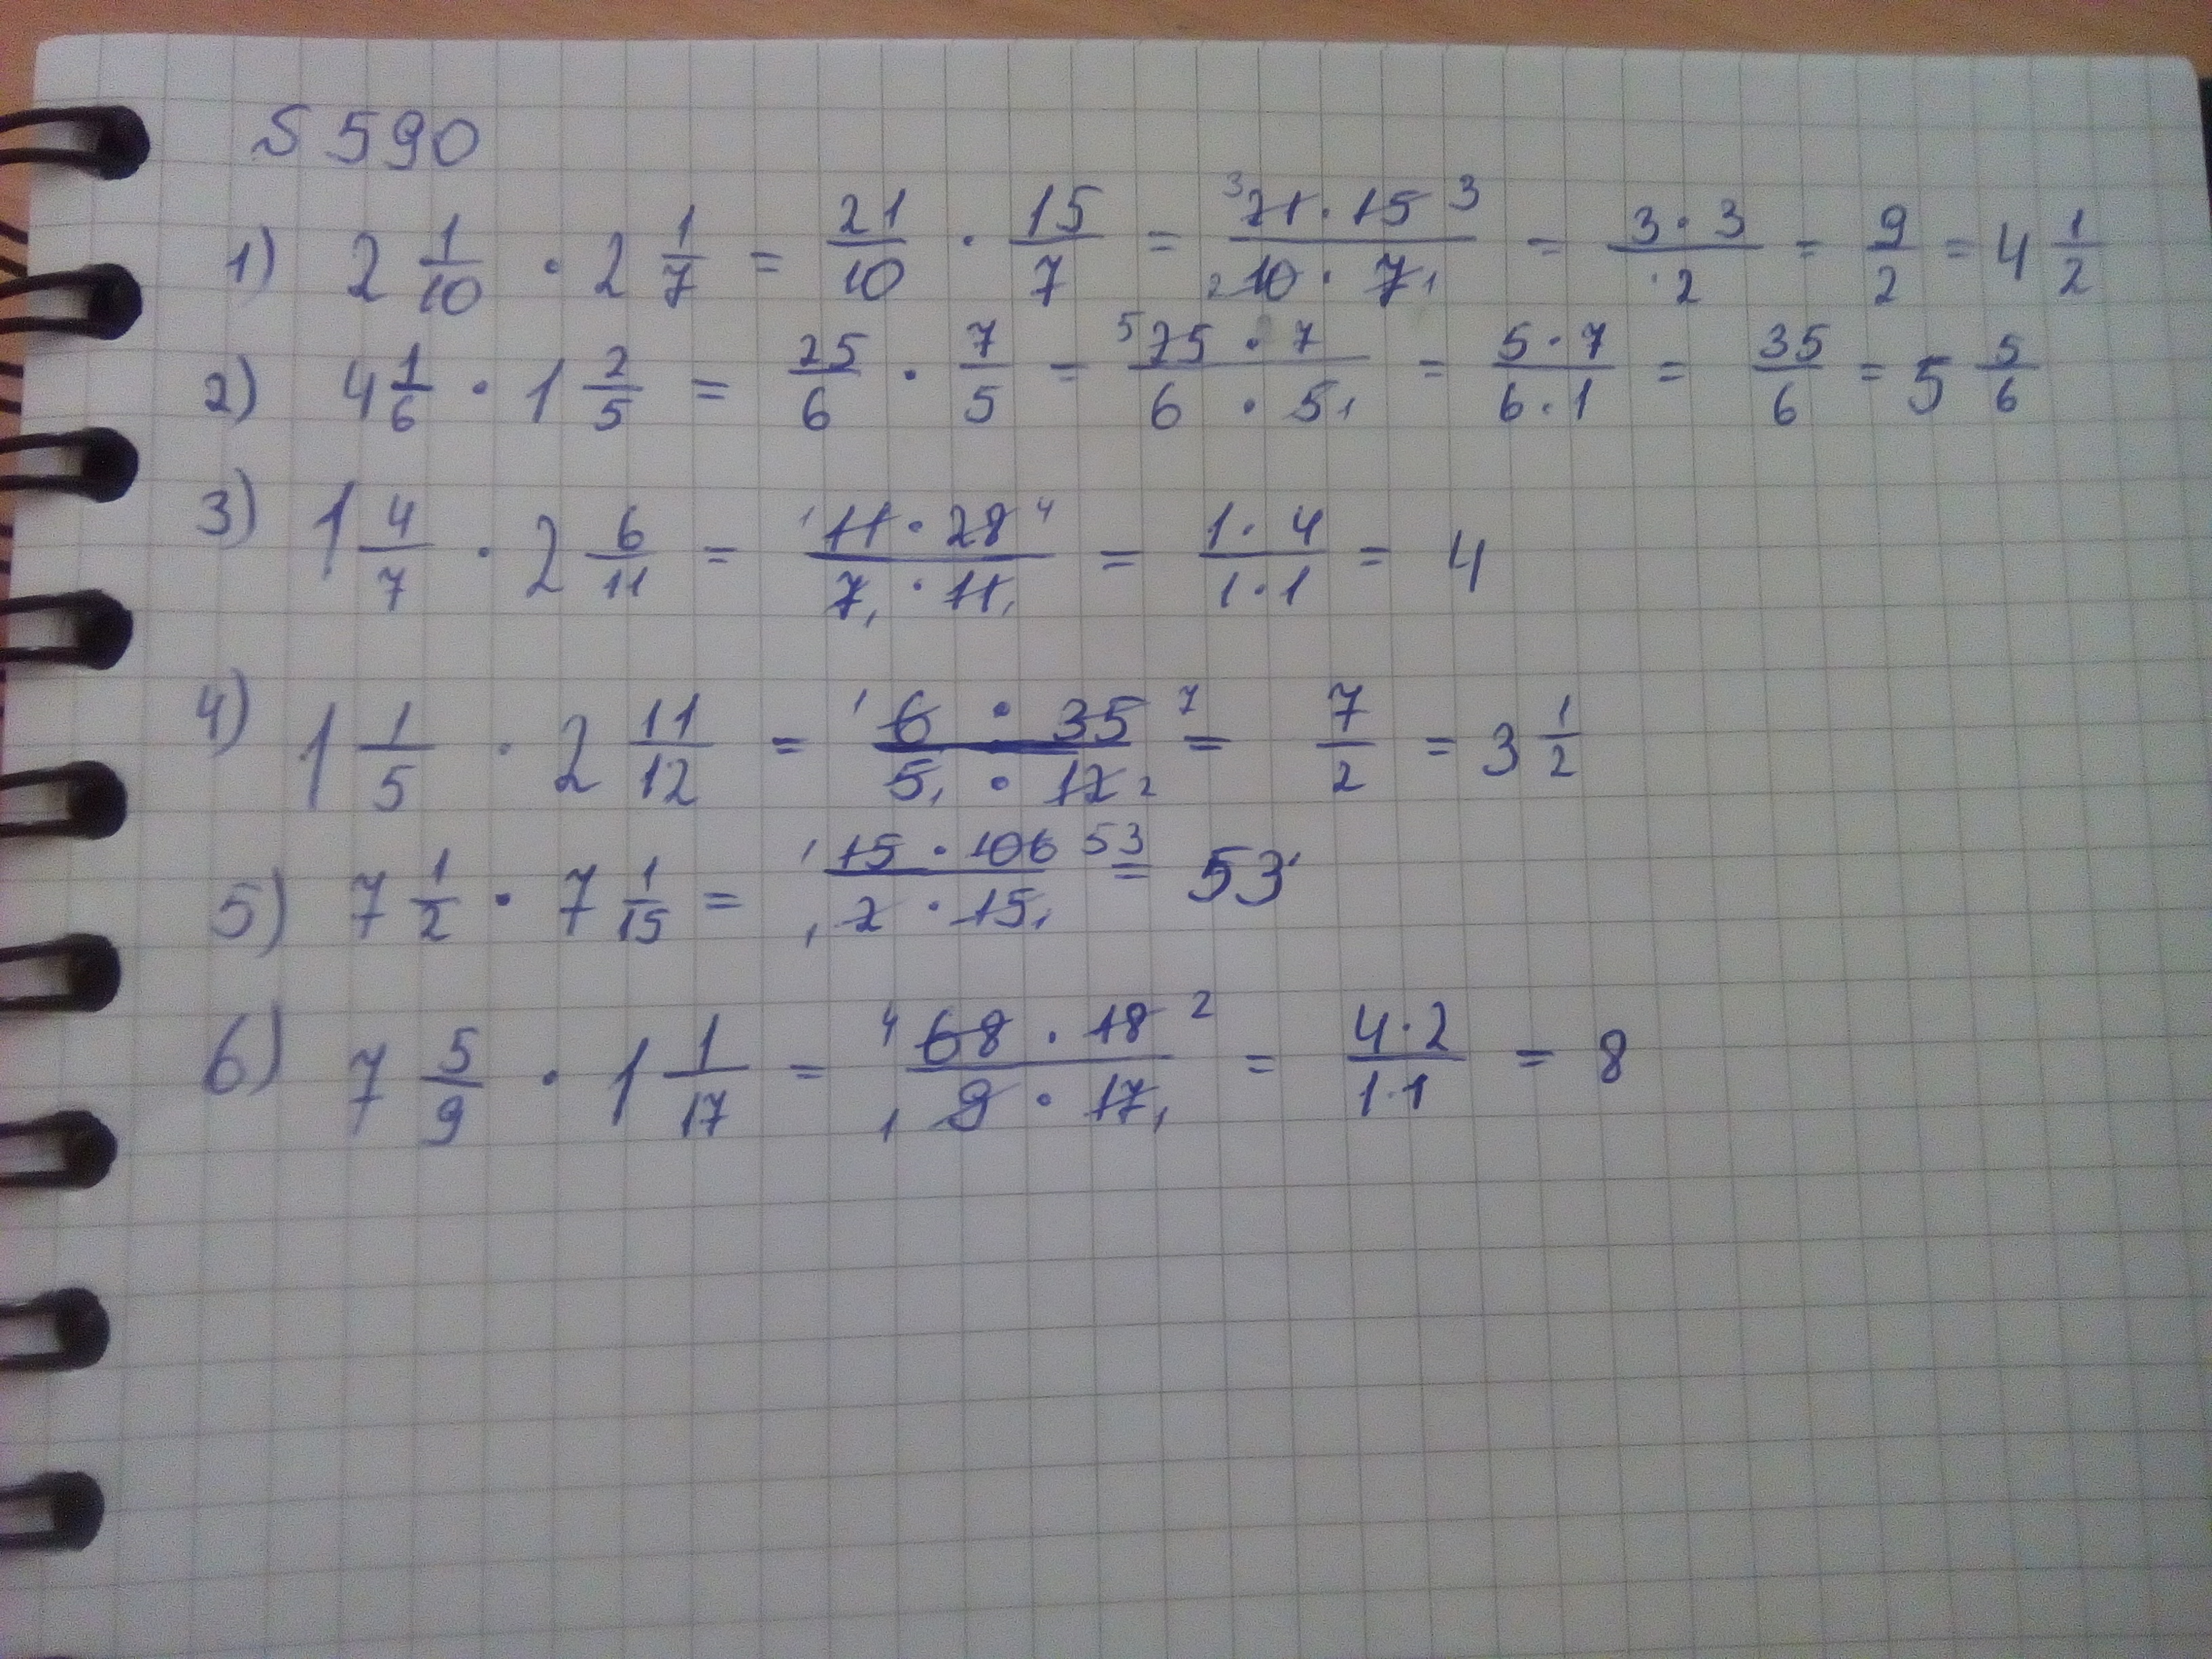 S 590
1) 2 1/10 · 2 1/7 = 21/10 · 15/7 = ³21 · 15 ³/₂10 · 7₁ = 3 · 3/· 2 = 9/2 = 4 1/2
2) 4 1/6 · 1 2/5 = 25/6 · 7/5 = ⁵25 · 7/6 · 5₁ = 5 · 7/6 · 1 = 35/6 = 5 5/6
3) 1 4/7 · 2 6/11 = ¹11 · 28 ⁴/7₁ · 11₁ = 1 · 4/1 · 1 = 4
4) 1 1/5 · 2 11/12 = ¹6 · 35 ⁷/5₁ · 12₂ = 7/2 = 3 1/2
5) 7 1/2 · 7 1/15 = ¹15 · 106 ⁵³/₁2 · 15₁ = 53
6) 7 5/9 · 1 1/17 = ⁴68 · 18 ²/₁9 · 17₁ = 4 · 2/1 · 1 = 8